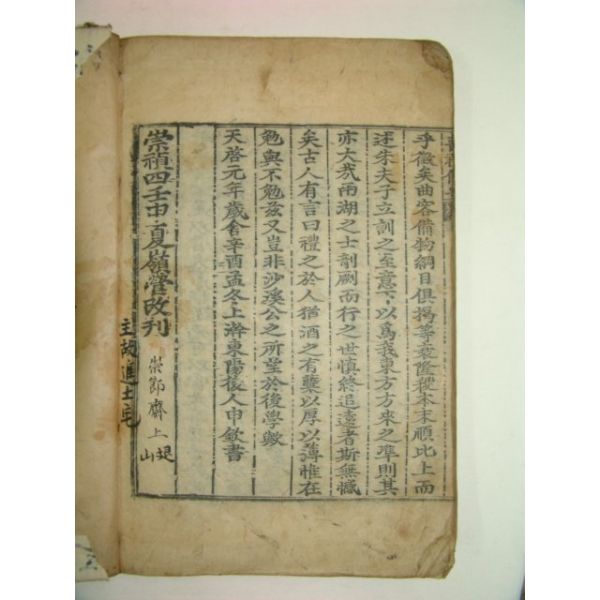 乎微矣曲客備物綱目俱揭等衰隆穪本末順比上而
述朱夫子立訓之至意下以爲我東方方來之準則其
亦大哉兩湖之士剞劂而行之世愼終追遠者斯無憾
矣古人有言曰禮之於人猶酒之有蘗以厚以薄惟在
勉與不勉玆又豈非沙溪公之所望於後學歟
天啓元年歲舍辛酉孟冬上澣東陽後人申欽書
崇禎四壬申夏嶺營改刊
崇節齋上
山
主故進士宅